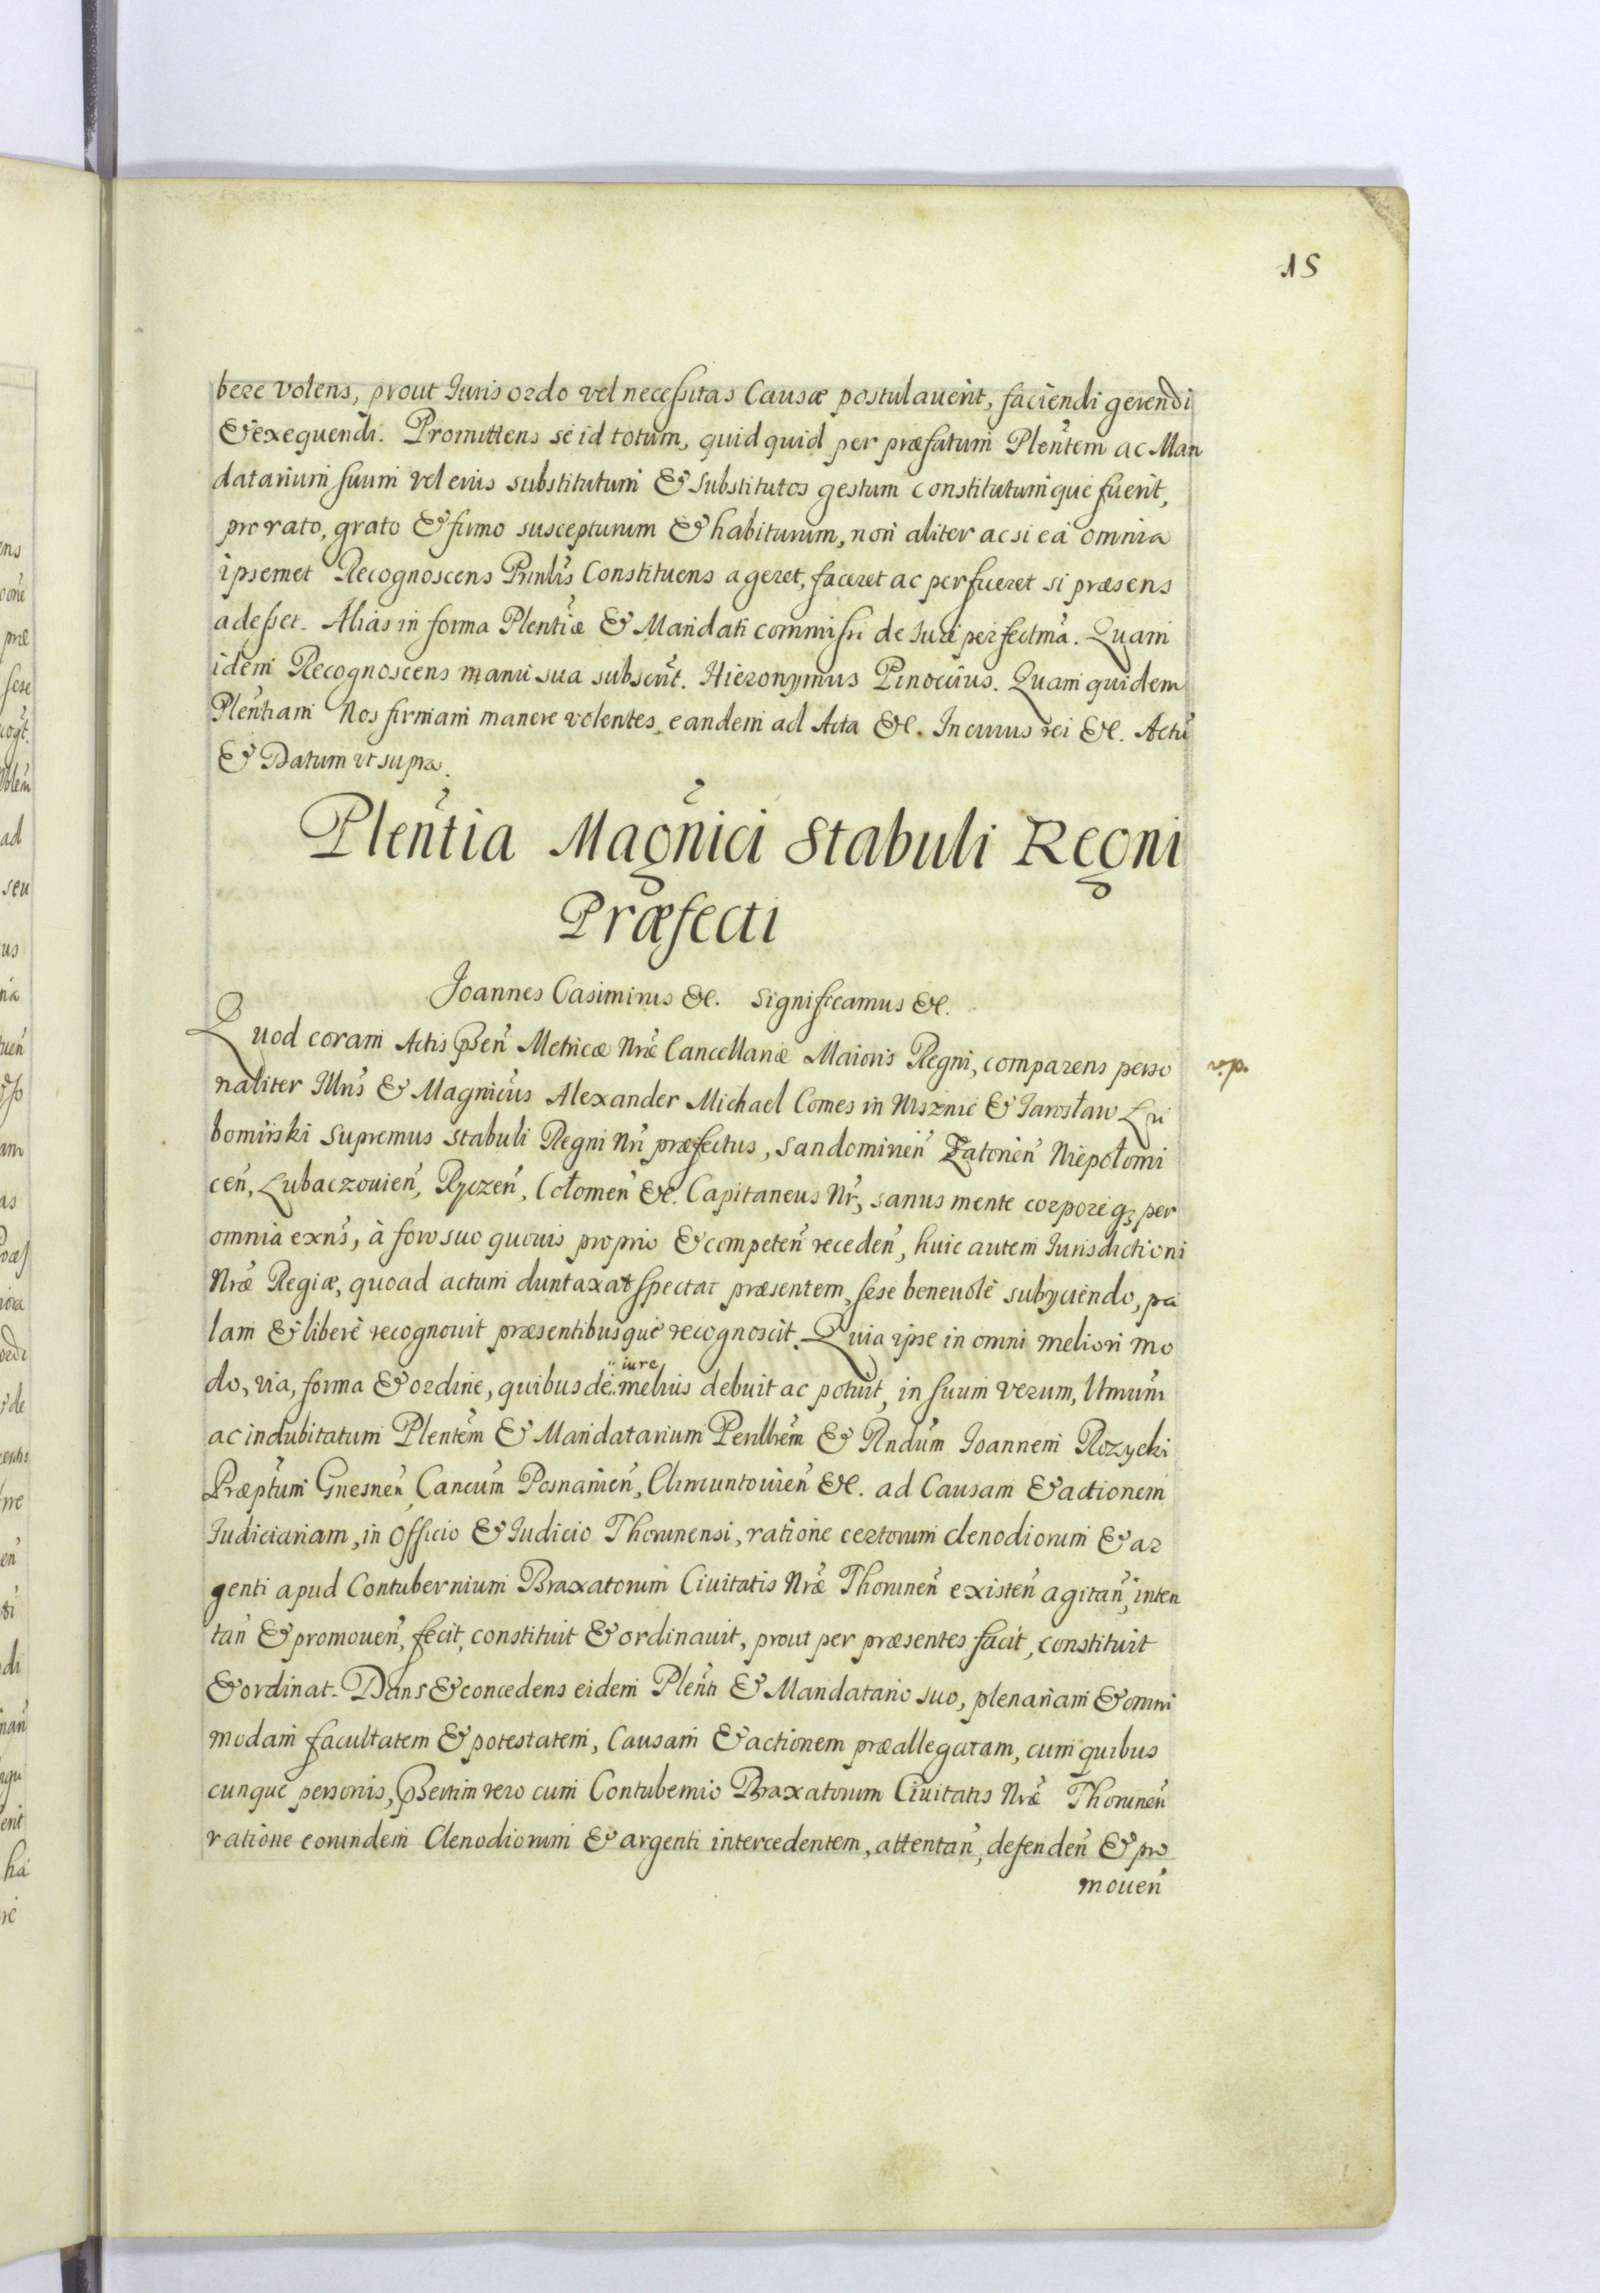 15
bere volens, prout Iuris ordo vel necessitas Causæ postulauerit, faciendi gerendi
& exequendi. Promittens se id totum, quid quid per præfatum Plen̄tem ac Man
datarium suum vel eius substitutum & substitutos gestum constitutumque fuerit,
pro rato, grato & firmo suscepturum & habiturum, non aliter ac si ea omnia
ipsemet Recognoscens Prinl̄is Constituens ageret, faceret ac perficeret si præsens
adesset. Alias in forma Plen̄tiæ & Mandati commissi de Iure perfectm̄a. Quam
idem Recognoscens manu sua subscrīt. Hieronymus Pinoccius. Quam quidem
Plen̄tiam Nos firmam manere volentes, eandem ad Acta &c. In cuius rei &c. Actū
& Datum ut supra.
Plen̄tia Magn̄ici Stabuli Regni
Præfecti
Joannes Casimirus &c. Significamus &c.
Quod coram Actis p̄sen̄ Metricæ Nr̄æ Cancellariæ Maioris Regni, comparens perso
v.p.
naliter Illr̄is & Magnīcus Alexander Michael Comes in Wisznic & Iarosław Lu
bomirski Supremus Stabuli Regni Nr̄i præfectus, Sandomirien̄ Zatorien̄ Niepołomi
cen̄, Lubaczouien̄, Ryczen̄, Cołomen̄ &c. Capitaneus Nr̄, sanus mente corporeq₃ per
omnia exn̄s, à foro suo quouis proprio & competen̄ receden̄, huic autem Iurisdictioni
Nr̄æ Regiæ, quoad actum duntaxat spectat præsentem, sese beneuolè subyciendo, pa
lam & liberè recognouit præsentibusque recognoscit. Quia ipse in omni meliori mo
do, via, forma & ordine, quibus de iure melius debuit ac potuit, in suum verum, ltmum̄
ac indubitatum Plentem̄ & Mandatarium Perillrēm & Rndūm Joannem Rozycki
Præptum̄ Gnesnen̄, Cancum̄ Posnanien̄, Climuntouien̄ &c. ad Causam & actionem
Iudiciariam, in Officio & Iudicio Thorunensi, ratione certorum clenodiorum & ar
genti apud Contubernium Braxatorum Ciuitatis Nr̄æ Thorunen̄ existen̄ agitan̄, inten
tan̄ & promouen̄, fecit, constituit & ordinauit, prout per præsentes facit, constituit
& ordinat. Dans & concedens eidem Plen̄ti & Mandatario suo, plenariam & omni
modam facultatem & potestatem, Causam & actionem præallegatam, cum quibus
cunque personis, p̄sertim vero cum Contubernio Braxatorum Ciuitatis Nr̄æ Thorunen̄
ratione eorundem Clenodiorum & argenti intercedentem, attentan̄, defenden̄ & pro
mouen̄